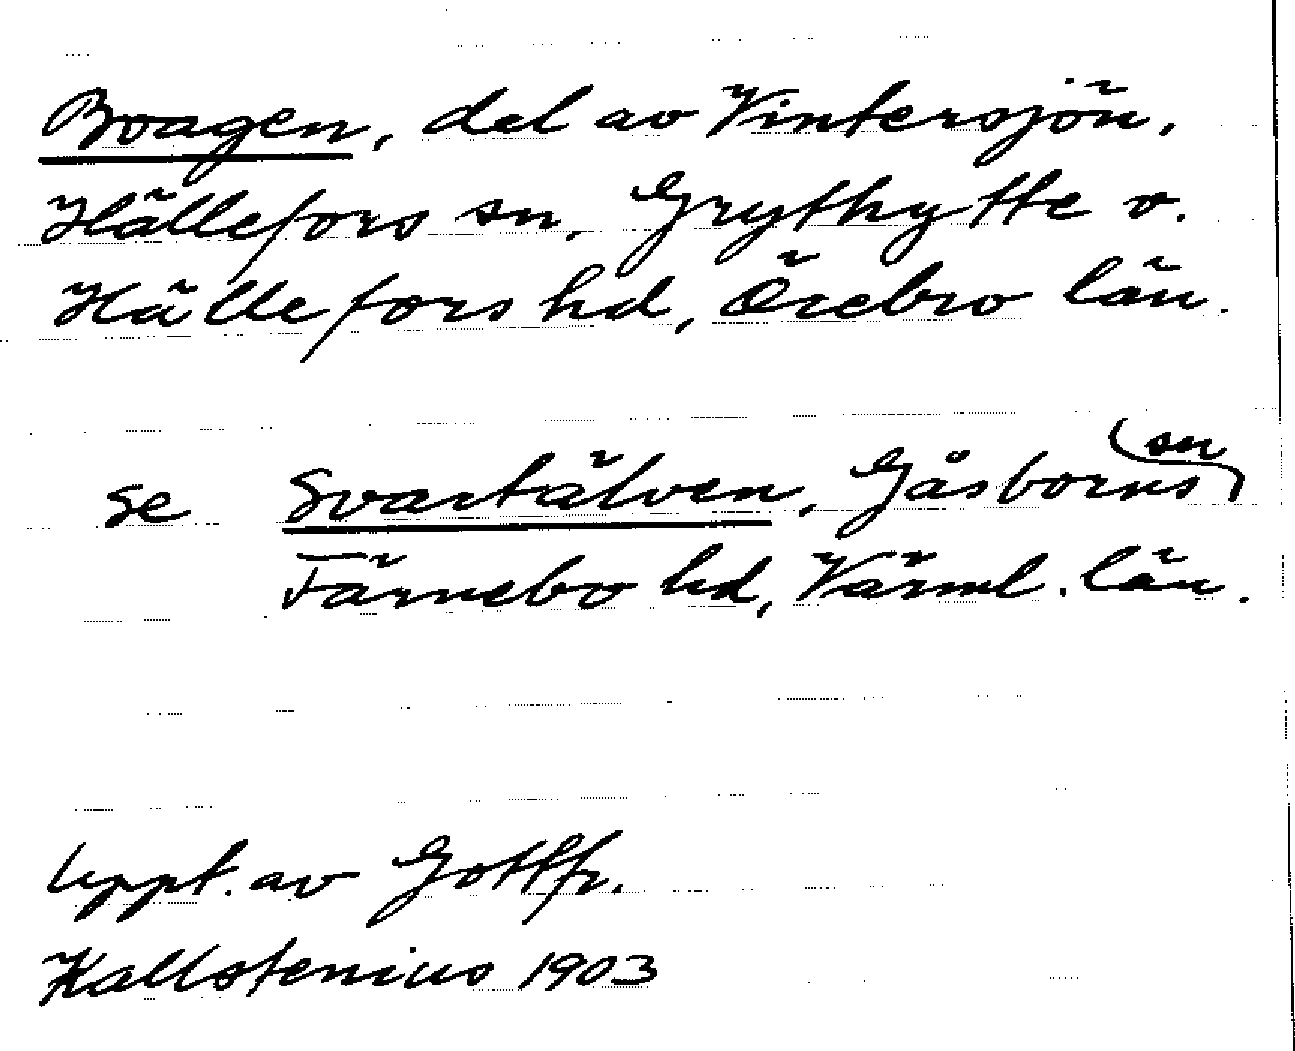 Boagen, del av Vintersjön,
Hällefors sn, Grythytte o.
Hällefors hd, Örebro län.
se Svartälven, Gåsborns sn
Färnebo hd, Värml. län.
Uppt. av Gottfr.
Kallstenius 1903